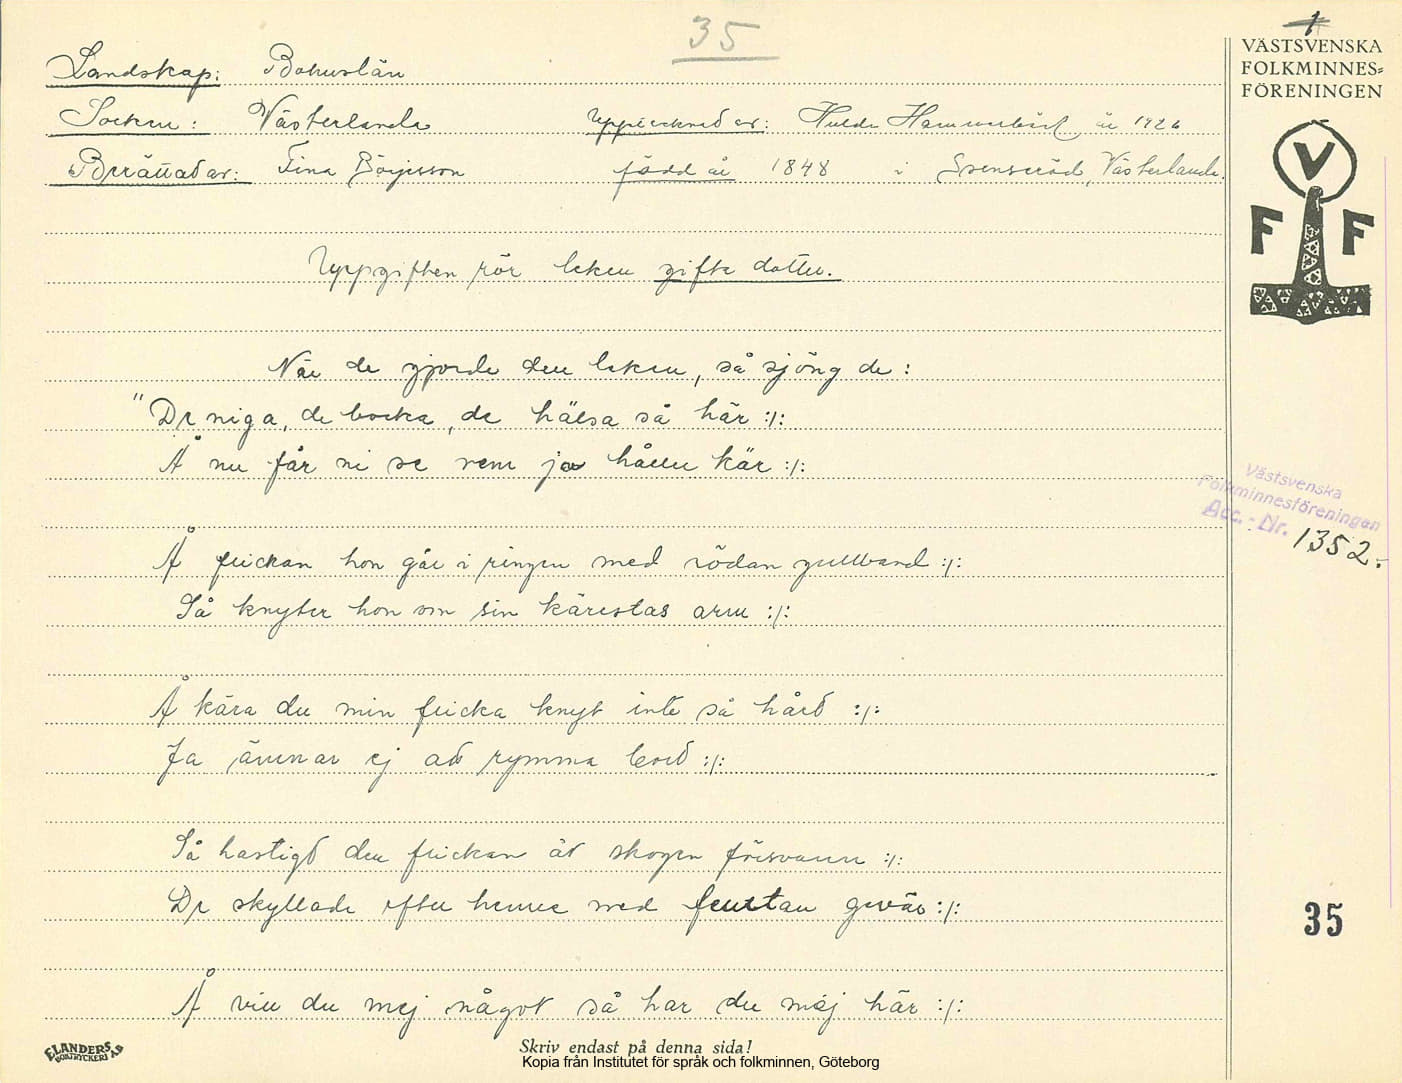 35
Landskap: Bohuslän
Socken: Västerlanda Upptecknad av: Hulda Hammarbäck år 1926
Berättad av: Fina Börjesson född år 1848 i Svenseröd, Västerlanda.
Uppgiften rör leken gifta dotter.
När de gjorde den leken, så sjöng de:
"De niga, de bocka, de hälsa så här :/:
Å nu får ni se vem ja håller kär :/:
Å flickan hon går i ringen med rödan gullband :/:
Så knyter hon om sin kärestas arm :/:
Å kära du min flicka knyt inte så hårt :/:
Ja ämnar ej att rymma bort :/:
Så hastigt den flickan åt skogen försvann :/:
De skyllade efter henne med flinttan gevär :/:
Å vill du mej något så har du mäj här :/:
VÄSTSVENSKA
FOLKMINNES=
FÖRENINGEN
V
F F
Västsvenska
Folkminnesföreningen
Acc.-Nr. 1352.
35
ELANDERS
BOKTRYCKERI AB
Skriv endast på denna sida!
Kopia från Institutet för språk och folkminnen, Göteborg